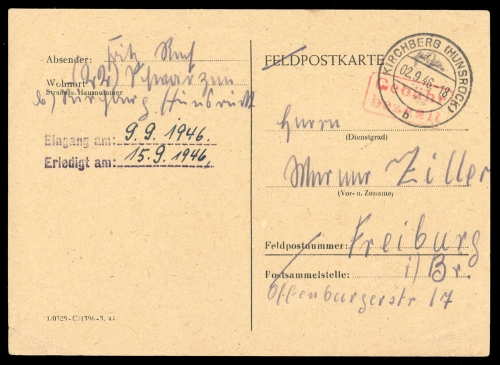 Absender: Fritz
Wohnort: (22) Schwarzen
Straße u. Hausnummer
b) Kirchberg Hunsrück
Eingang am: 9.9.1946.
Erledigt am: 15.9.1946.
1/0329-C/1396-5. 44
FELDPOSTKARTE
KIRCHBERG (HUNSRÜCK)
02.9.46.-18
b
Gebühr
bezahlt
Herrn
(Dienstgrad)
Werner Ziller
(Vor- u. Zuname)
Feldpostnummer: Freiburg
Postsammelstelle: i/Br.
Offenburgerstr 17